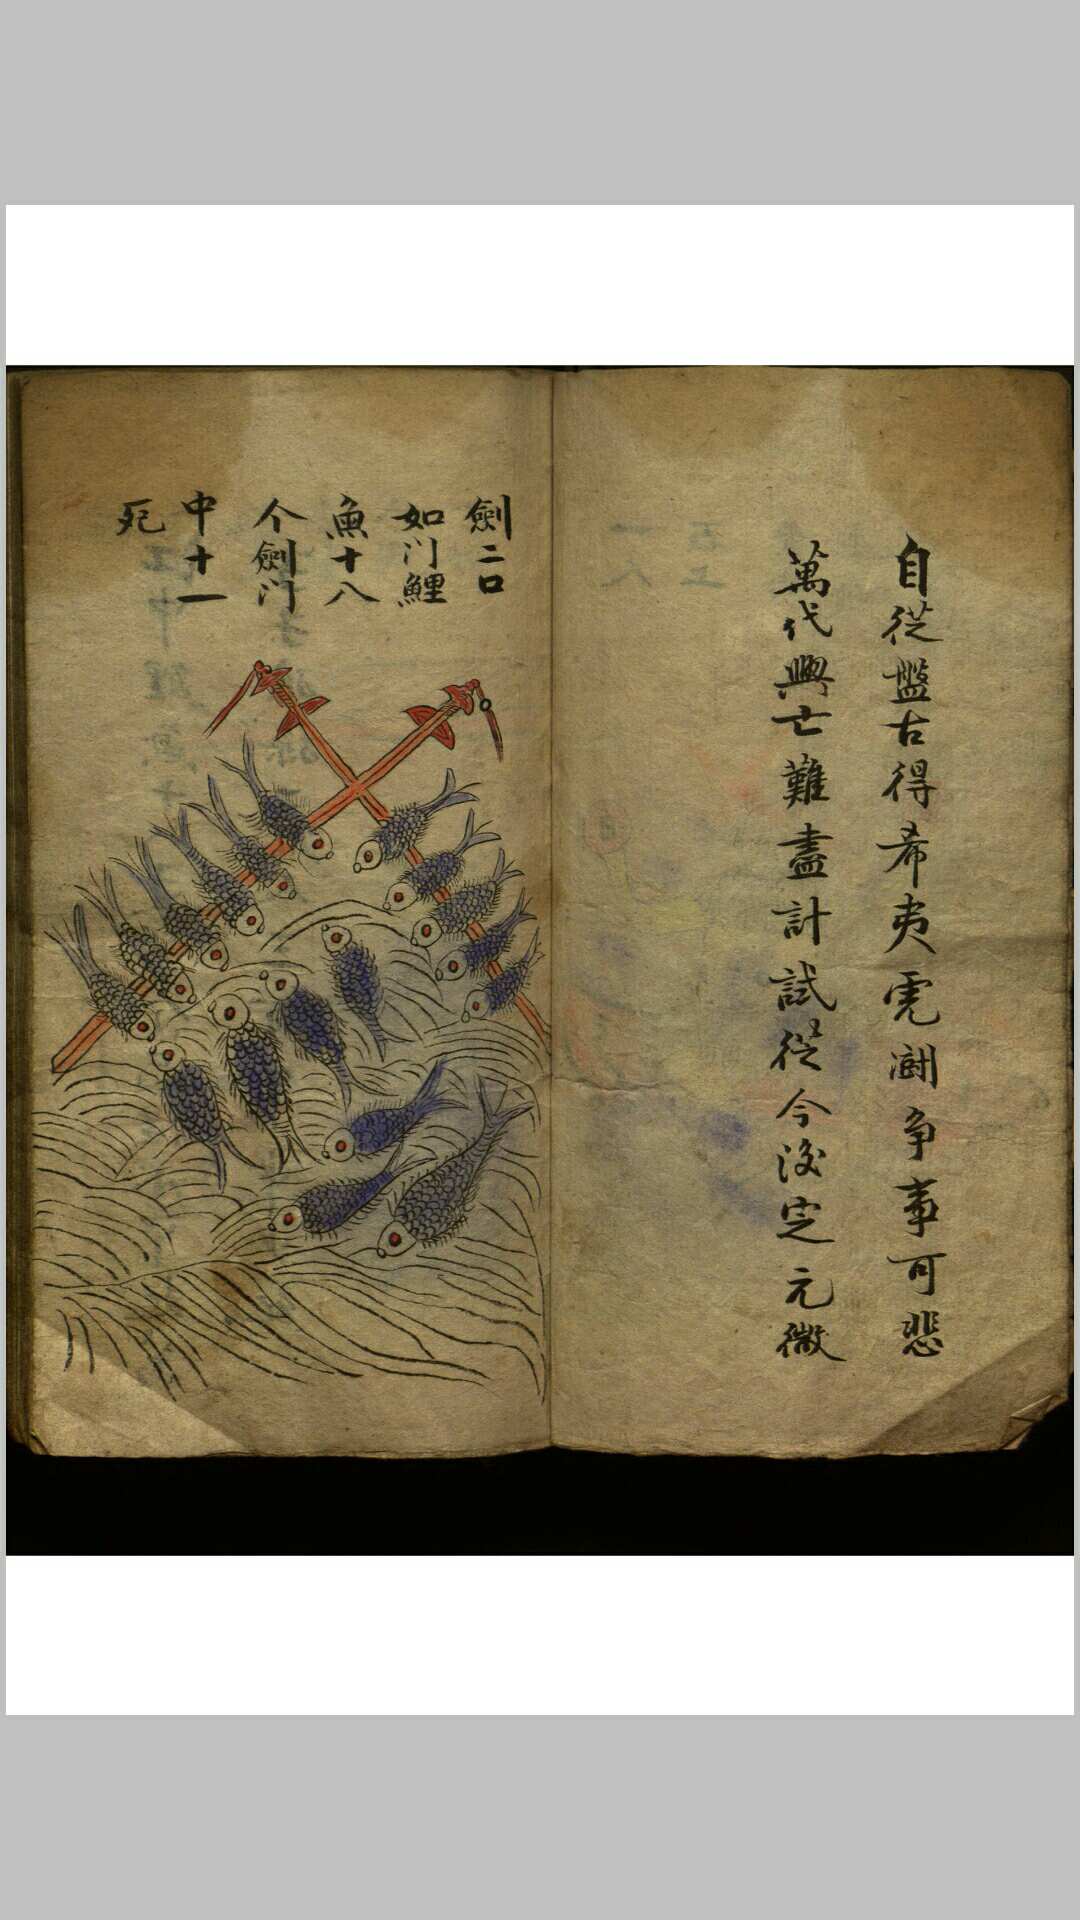 自從盤古得希夷虎鬪爭事可悲
萬代興亡難盡計試從今後定元微
劍二口
如门鯉
魚十八
个劍门
中十一
死